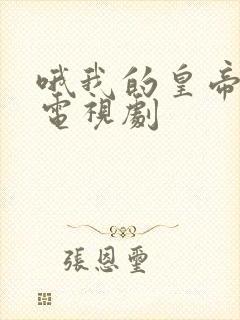 哦我的皇帝
電視劇
張恩璽